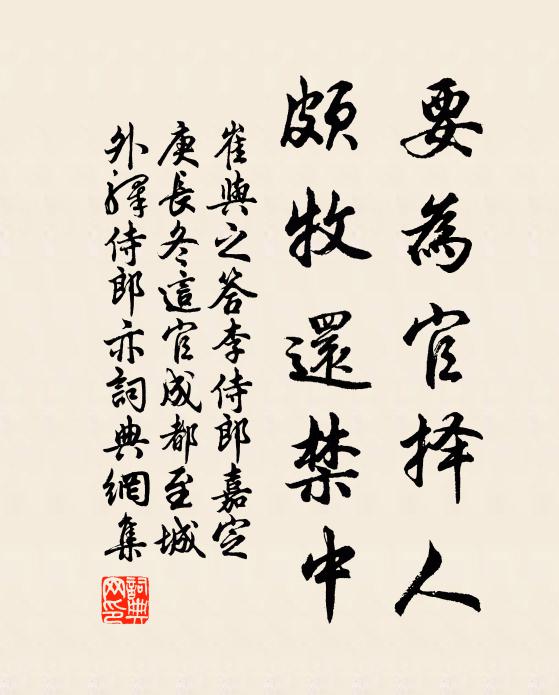 要為官择人
頗牧還禁中
崔與之答李侍郎嘉定
庚長冬這官成都至城
外釋侍郎亦詞典網集
詞典网印